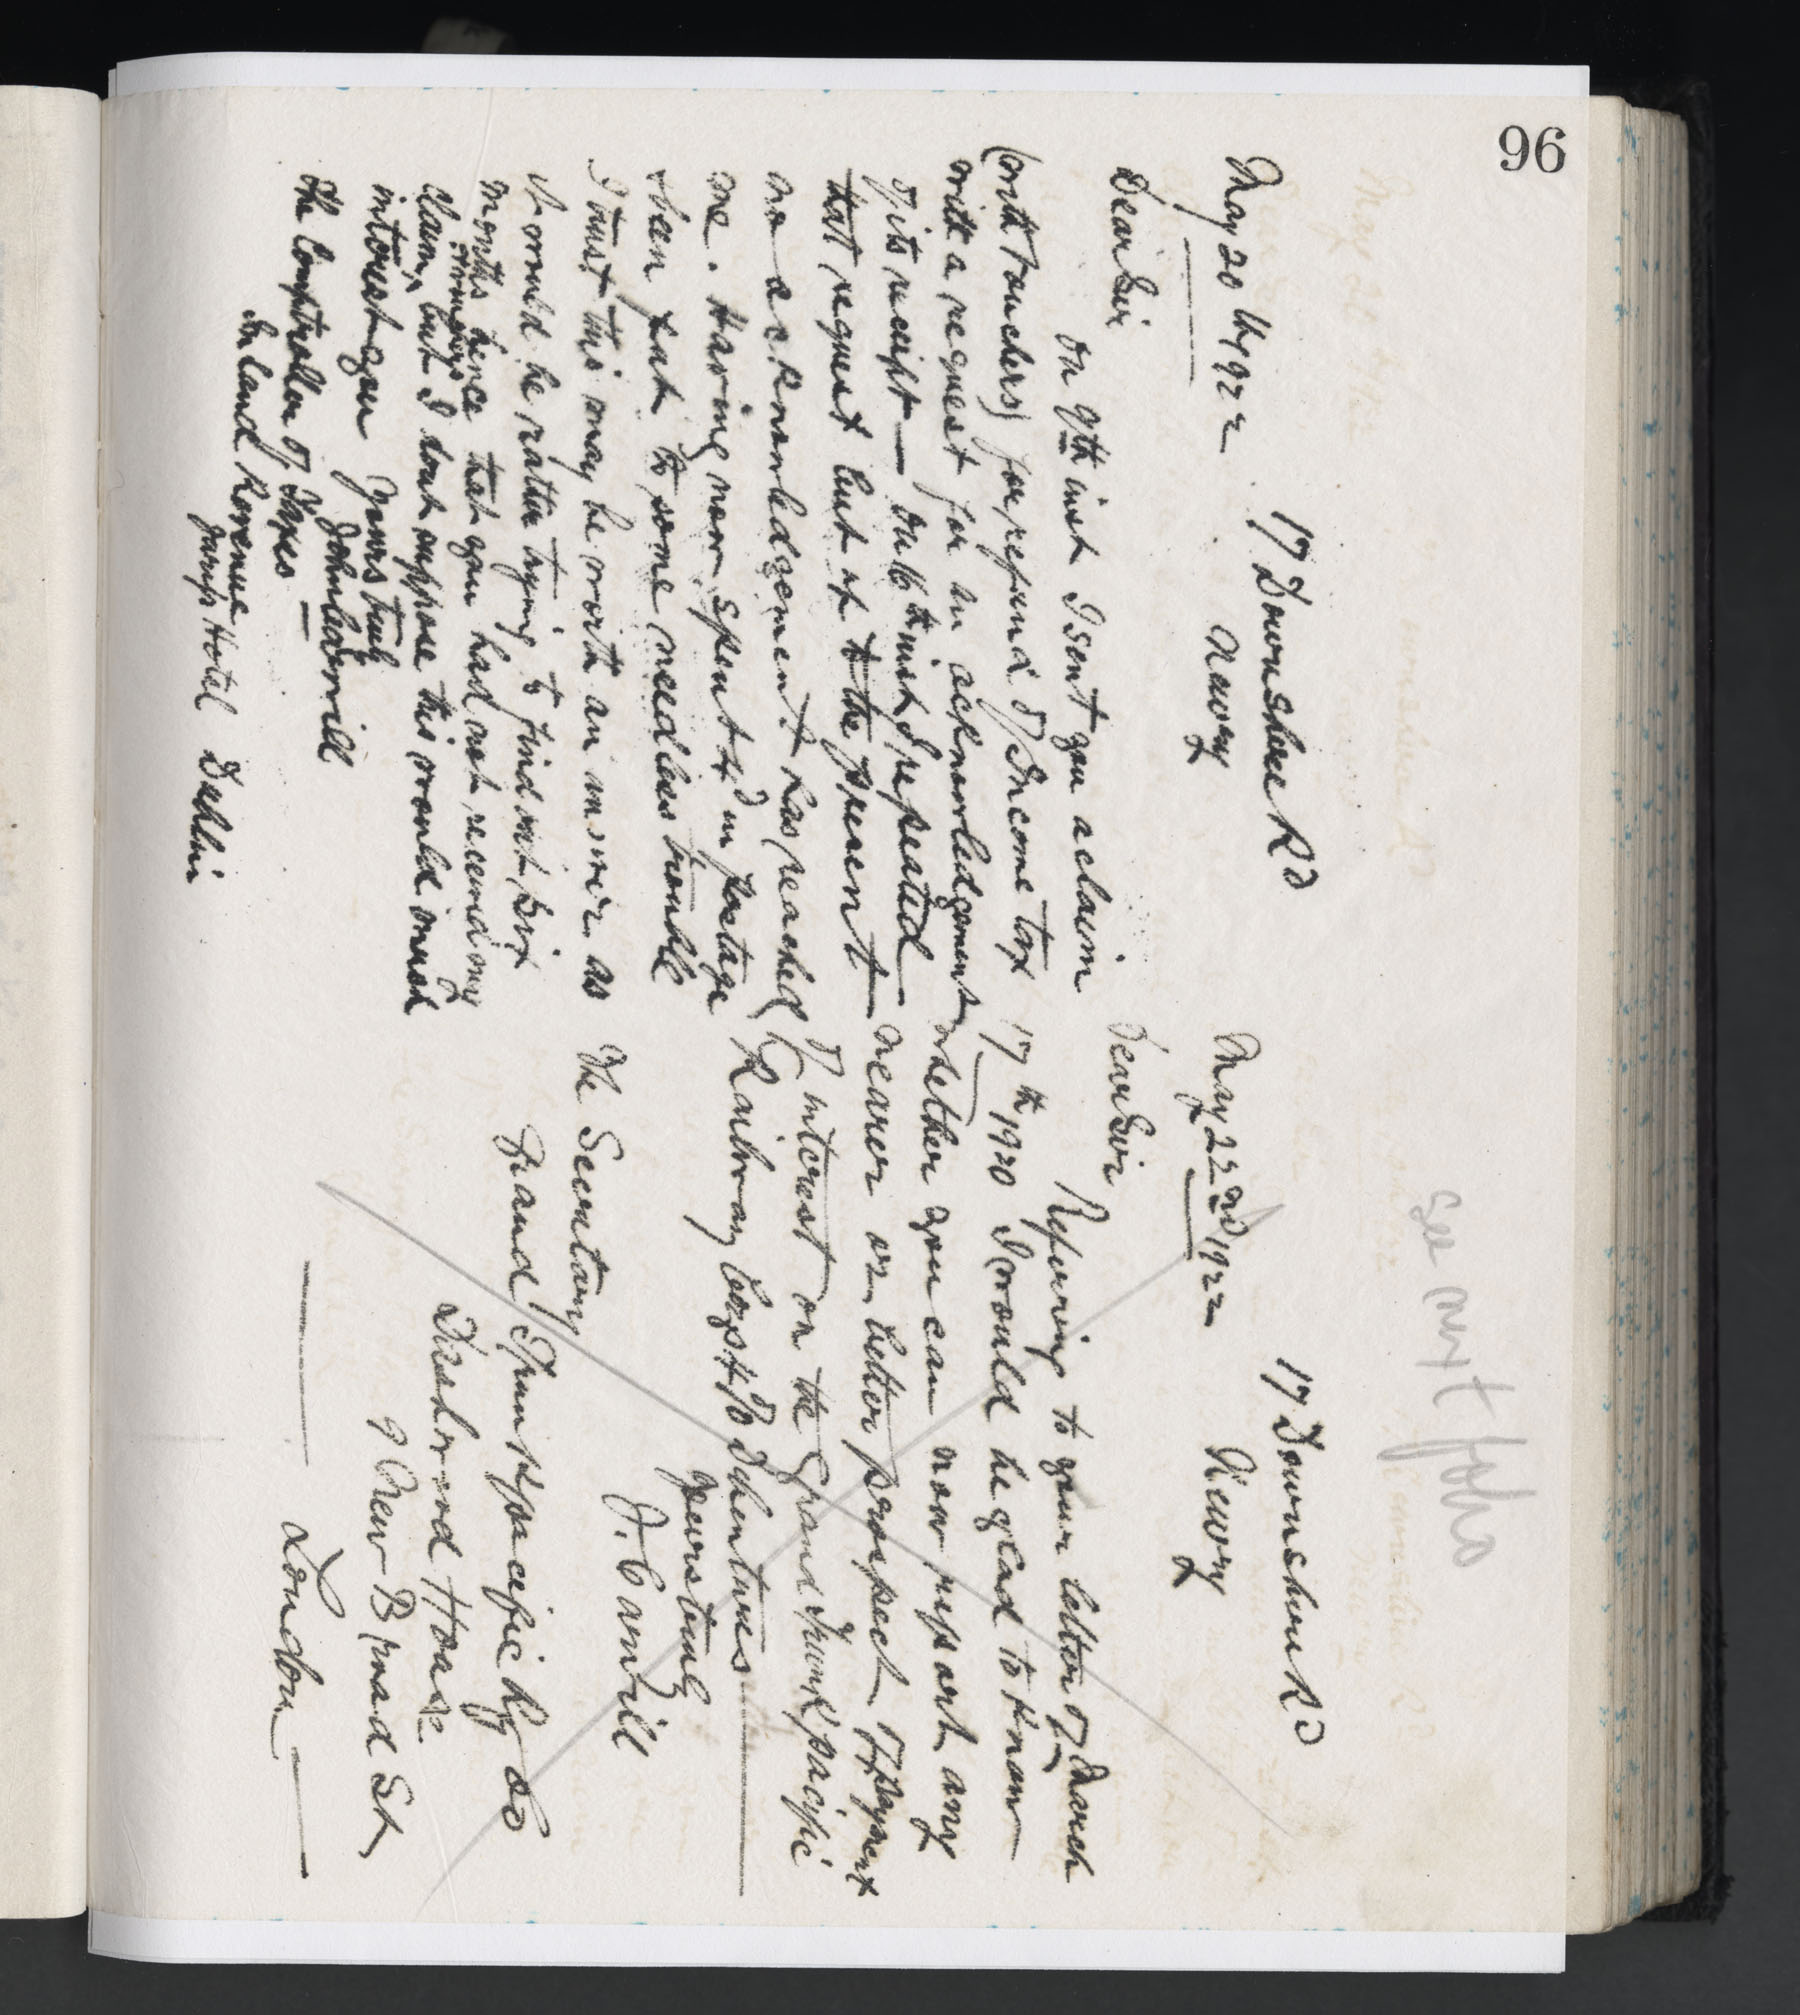 96
17 Downshire Rd
May 20th 1922 Newry
Dear Sir
On 9th inst I sent you a claim
(with vouchers) for refund of Income tax
with a request for an acknowledgement
of its receipt — On 16th inst I repeated
that request but up to the present
no acknowledgement has reached
me. Having now spent 4d in postage
& been put to some needless trouble
I trust this may be worth an answer as
it would be rather trying to find out, six
months hence that you had not received my
claim, but I dont suppose this would much
interest you Yours truly
John
The Comptroller of Taxes
Inland Revenue
Jurys Hotel Dublin
See next folio
17 Downshire Rd
May 22nd 1922 Newry
Dear Sir
Referring to your letter of March
17th 1920 I would be glad to know
whether you can now report any
nearer or better prospect of payment
of interest on the Grand Trunk Pacific
Railway Coys 4% Debentures
Yours truly
J.
The Secretary
Grand Trunk Pacific Ry Co
Dashwood House
9 New Broad St
London